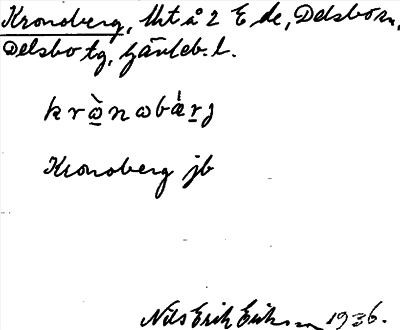 Kronoberg, lht å 2 E de, Delsbo sn,
Delsbo tg, Gävleb. l.
krò̱nobá̱rg
Kronoberg jb
Nils Erik Eriksson 1936.